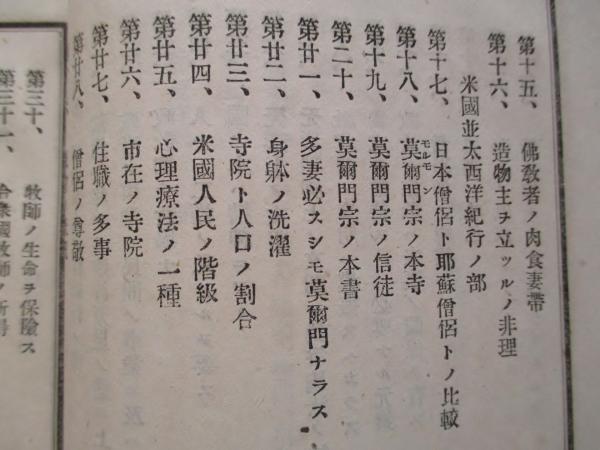 第十五、佛敎者ノ肉食妻帶
第十六、造物主ヲ立ツルノ非理
米國並太西洋紀行ノ部
第十七、日本僧侶ト耶蘇僧侶トノ比較
第十八、莫爾門宗ノ本寺
モルモン
第十九、莫爾門宗ノ信徒
第二十、莫爾門宗ノ本書
第廿一、多妻必スシモ莫爾門ナラス、
第廿二、身躰ノ洗濯
第廿三、寺院ト人口ノ割合
第廿四、米國人民ノ階級
第廿五、心理療法ノ一種
第廿六、市在ノ寺院
第廿七、住職ノ多事
第廿八、僧侶ノ尊敬
第三十、牧師ノ生命ヲ保險ス
第三十一、合衆國牧師ノ